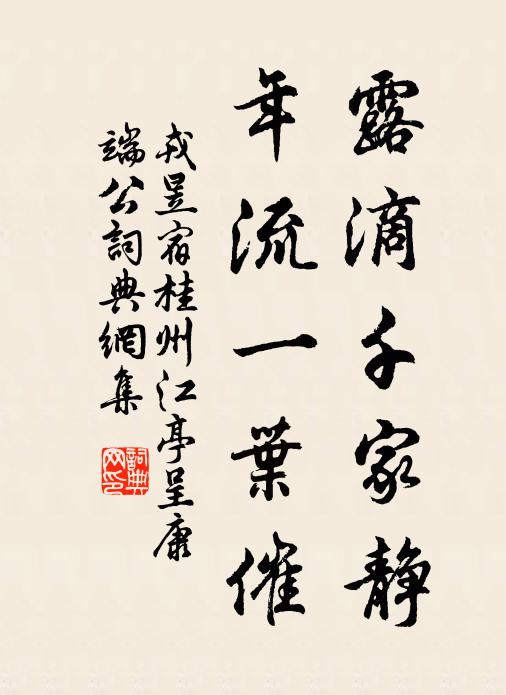 露滴千家静
年流一葉催
戎昱宿桂州江亭呈康
端公詞典網集
詞典
网印